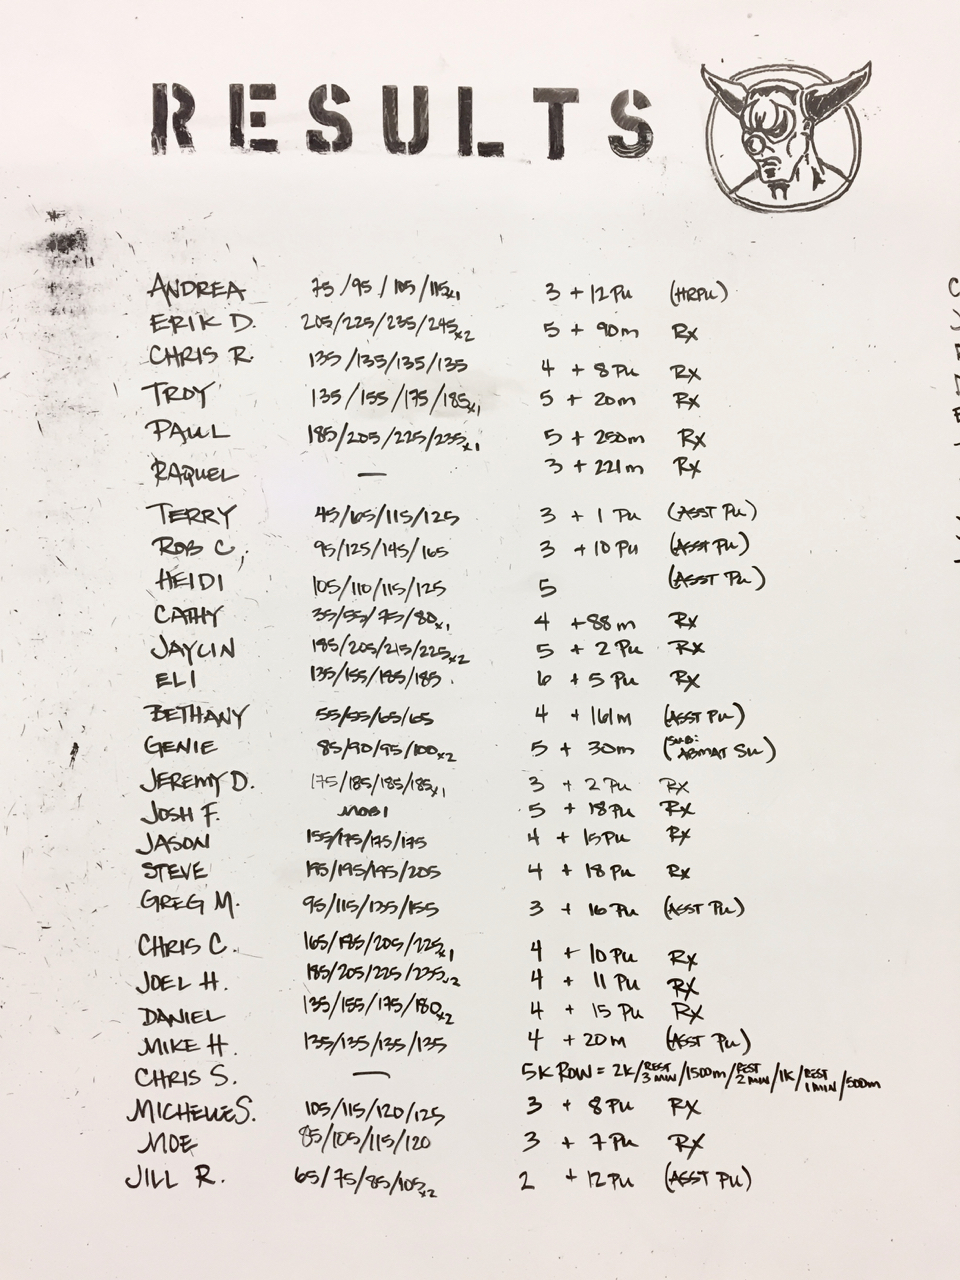 RESULTS
ANDREA 75/95/105/115x1 3 + 12 Pu (HRPU)
ERIK D. 205/225/235/245x2 5 + 90m Rx
CHRIS R. 135/135/135/135 4 + 8 Pu Rx
TROY 135/155/175/185x1 5 + 20m Rx
PAUL 185/205/225/235x1 5 + 250m Rx
RAQUEL — 3 + 221m Rx
TERRY 45/65/115/125 3 + 1 Pu (ASST Pu)
ROB C. 95/125/145/165 3 + 10 Pu (ASST Pu)
HEIDI 105/110/115/125 5 (ASST Pu)
CATHY 35/55/75/80x1 4 + 88m Rx
JAYLIN 185/205/215/225x2 5 + 2 Pu Rx
ELI 135/155/185/185 6 + 5 Pu Rx
BETHANY 55/55/65/65 4 + 161m (ASST Pu)
GENIE 85/90/95/100x2 5 + 30m (SUB: ABMAT Su)
JEREMY D. 175/185/185/185x1 3 + 2 Pu Rx
JOSH F. MOBI 5 + 18 Pu Rx
JASON 155/175/175/175 4 + 15 Pu Rx
STEVE 195/195/195/205 4 + 18 Pu Rx
GREG M. 95/115/135/155 3 + 16 Pu (ASST Pu)
CHRIS C. 165/185/205/225x1 4 + 10 Pu Rx
JOEL H. 185/205/225/235x2 4 + 11 Pu Rx
DANIEL 135/155/175/180x2 4 + 15 Pu Rx
MIKE H. 135/135/135/135 4 + 20m (ASST Pu)
CHRIS S. — 5K ROW = 2K/REST 3 MIN/1500m/REST 2 MIN/1K/REST 1 MIN/500m
MICHELLE S. 105/115/120/125 3 + 8 Pu Rx
MOE 85/105/115/120 3 + 7 Pu Rx
JILL R. 65/75/85/105x2 2 + 12 Pu (ASST Pu)